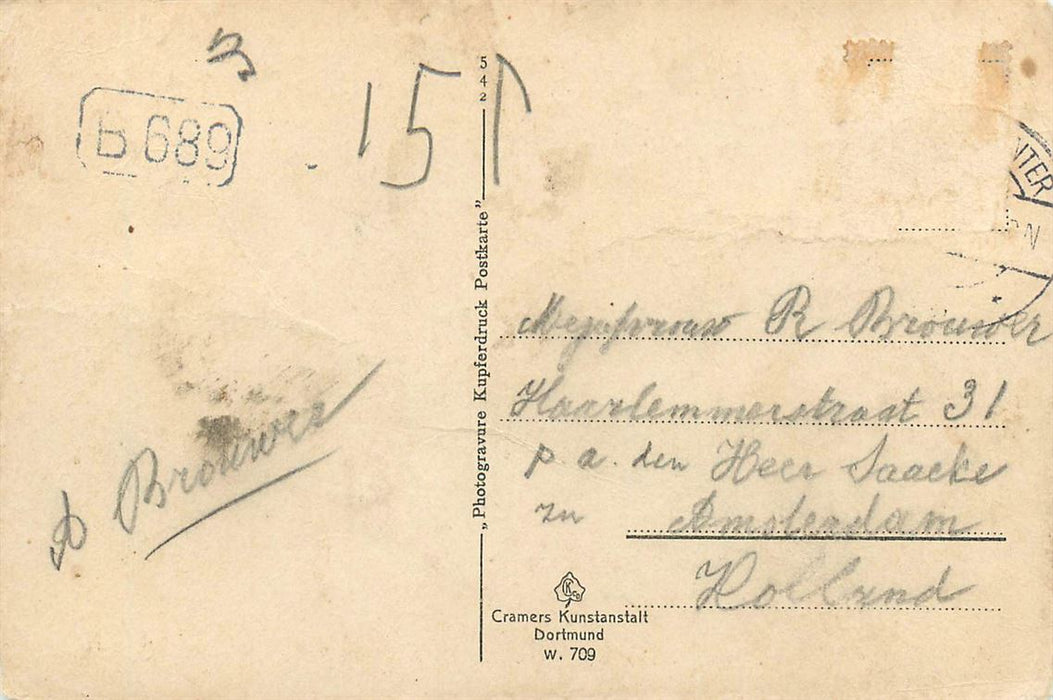 B 689
151
542
„Photogravure Kupferdruck Postkarte”
NTER
Mejufvrouw R Brouwer
Haarlemmerstraat 31
p a. den Heer Saacke
zu Amsterdam
Holland
Brouwer
CK
Cramers Kunstanstalt
Dortmund
W. 709